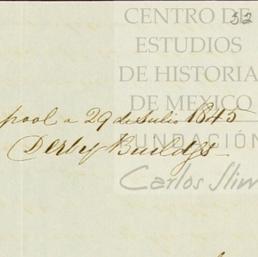 52
CENTRO DE
ESTUDIOS
DE HISTORIA
DE MEXICO
FUNDACIÓN
Carlos Slim
pool a 29 de Julio 1845
Derby Buildgs